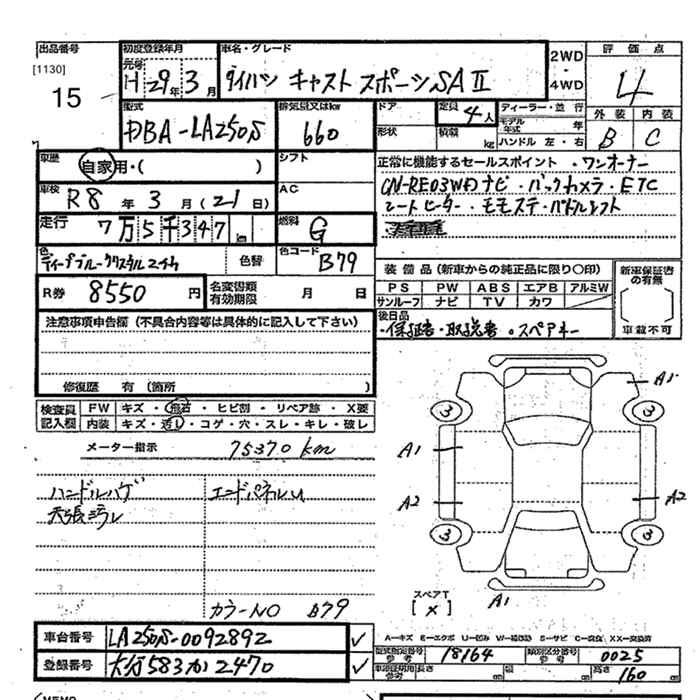 出品番号 初度登録年月 車名・グレード 2WD 評価点
[1130] 元号
15 H 29年 3月 ダイハツ キャスト スポーツSAⅡ ・4WD 4
型式 排気量又はkw ドア 定員 4人 ディーラー・並行 外装 内装
DBA-LA250S 660 形状 積載 kg モデル年式 年 B C
ハンドル 左・右
車歴 自家用・( ) シフト 正常に機能するセールスポイント ・ワンオーナー
車検 R8年 3月(21日) AC CN-RE03WDナビ・バックカメラ・ETC
走行 7万5千347km 燃料 G シートヒーター・モモステ・パドルシフト
色 ディープブルークリスタルマイカ 色替 色コード B79
R券 8550円 名変書類有効期限 月 日 装備品(新車からの純正品に限り○印) 新車保証書の有無
PS PW ABS エアB アルミW
サンルーフ ナビ TV カワ
車載不可
注意事項申告欄(不具合内容等は具体的に記入して下さい) 後日品
・保証書・取説書 ・スペアキー
修復歴 有(箇所 )
検査員記入欄 FW キズ・飛石・ヒビ割・リペア跡・X要
内装 キズ・汚レ・コゲ・穴・スレ・キレ・破レ
メーター指示 75370km
ハンドルハゲ エンドパネルU
天張汚レ
カラーNO B79
A1
3 3
A1
A2 A2
3 3
スペアT
[×] A1
車台番号 LA250S-0092892 ✓
A-キズ E-エクボ U-凹み W-補修跡 S-サビ C-腐食 XX-交換済
登録番号 大分583か2470 ✓
型式指定番号 参考 18164 類別区分番号 参考 0025
車庫証明用 参考 長さ cm 幅 cm 高さ 160cm
MEMO